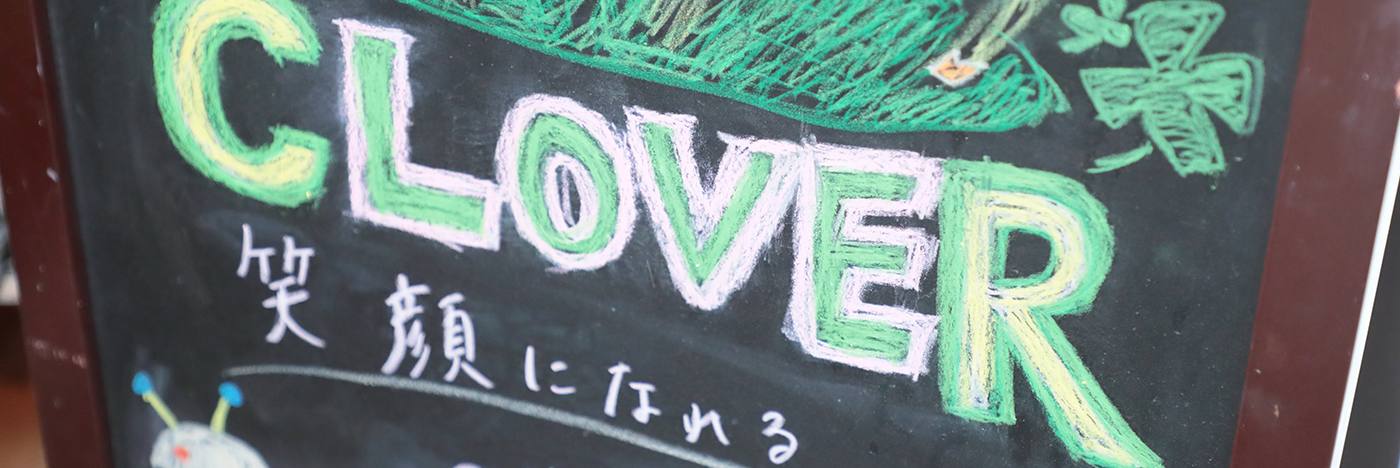 CLOVER
笑顔になれる